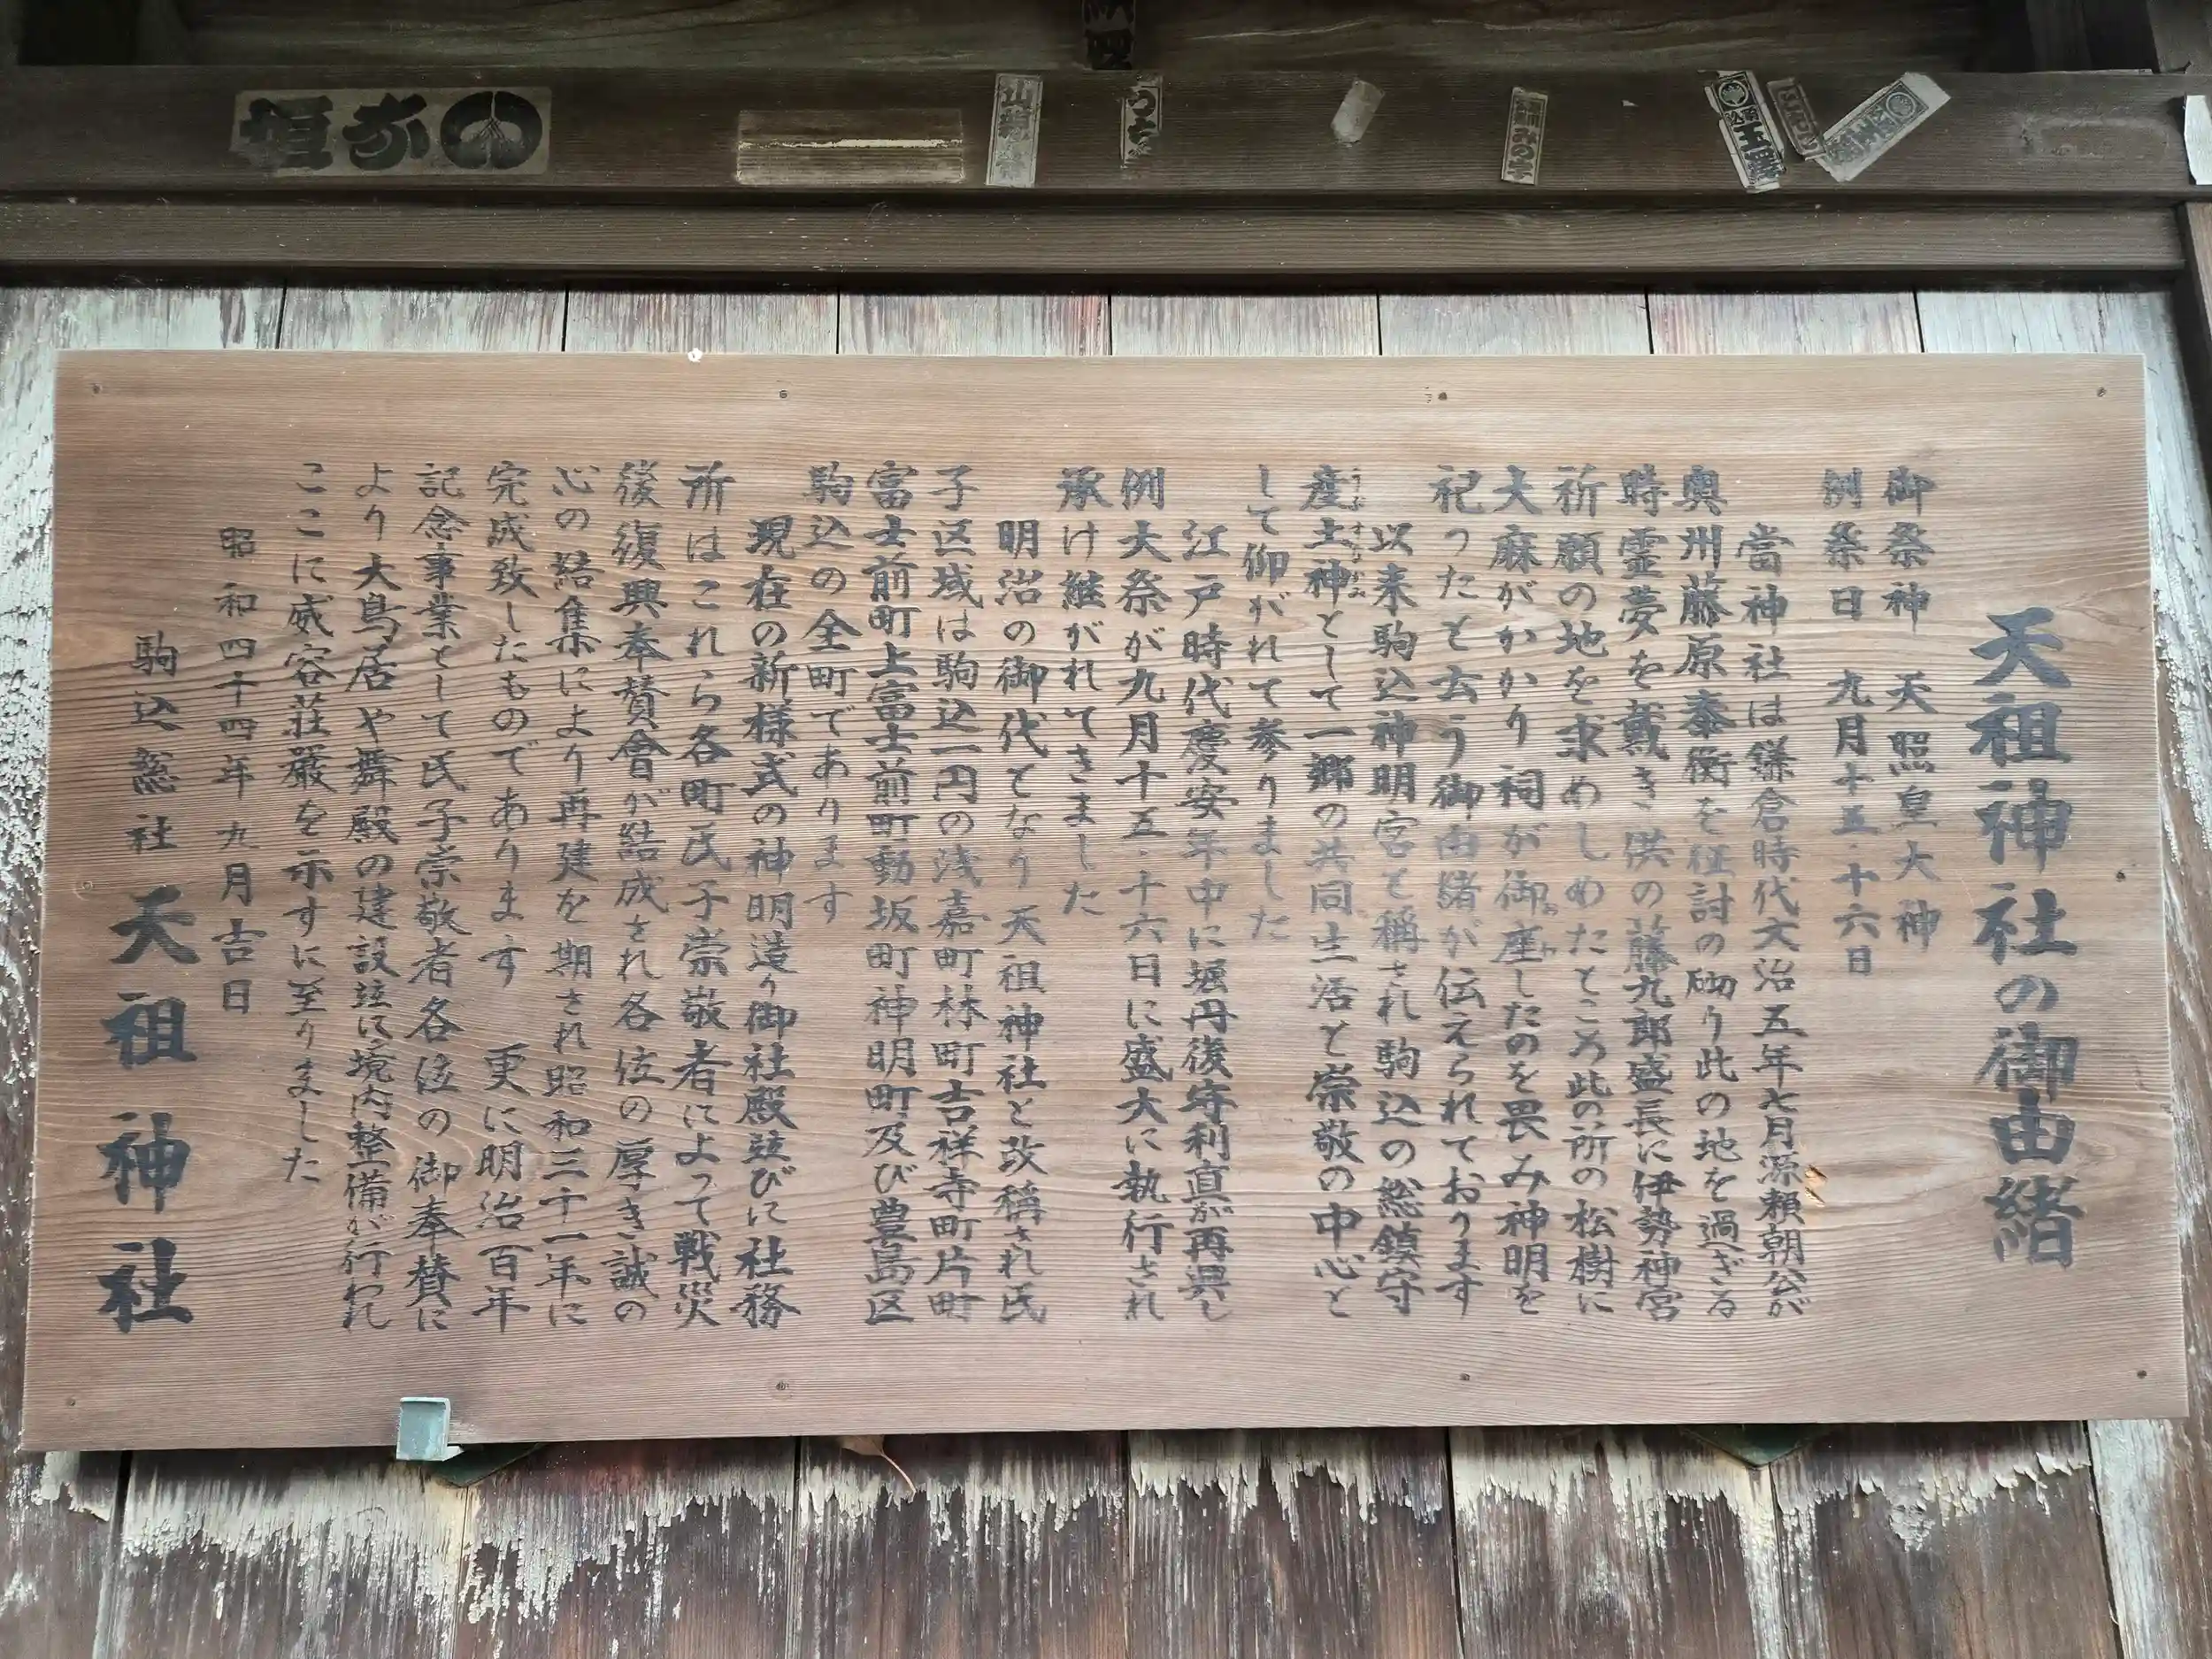 天祖神社の御由緒
御祭神　天照皇大神
例祭日　九月十五・十六日
當神社は鎌倉時代文治五年七月源頼朝公が
奥州藤原泰衡を征討の砌り此の地を過ぎる
時霊夢を戴き供の藤九郎盛長に伊勢神宮
祈願の地を求めしめたところ此の所の松樹に
大麻がかかり祠が御座したのを畏み神明を
祀ったと云う御由緒が伝えられております
以来駒込神明宮と稱され駒込の総鎮守
産土神として一郷の共同生活と崇敬の中心と
うぶすながみ
して仰がれて参りました
江戸時代慶安年中に堀丹後守利直が再興し
例大祭が九月十五・十六日に盛大に執行され
承け継がれてきました
明治の御代となり天祖神社と改稱され氏
子区域は駒込一円の浅嘉町林町吉祥寺町片町
富士前町上富士前町動坂町神明町及び豊島区
駒込の全町であります
現在の新様式の神明造り御社殿竝びに社務
所はこれら各町氏子崇敬者によって戦災
後復興奉賛會が結成され各位の厚き誠の
心の結集により再建を期され昭和三十一年に
完成致したものであります　更に明治百年
記念事業として氏子崇敬者各位の御奉賛に
より大鳥居や舞殿の建設竝に境内整備が行われ
ここに威容荘厳を示すに至りました
昭和四十四年九月吉日
駒込総社天祖神社